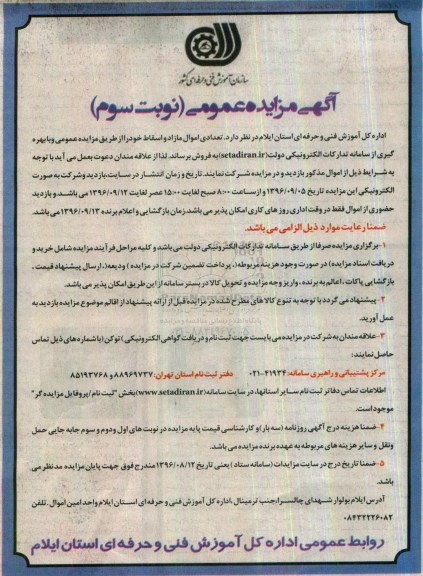 سازمان آموزش فنی و حرفه ای کشور
آگهی مزایده عمومی (نوبت سوم)
اداره کل آموزش فنی و حرفه ای استان ایلام در نظر دارد. تعدادی اموال مازاد و اسقاط خود را از طریق مزایده عمومی وبا بهره
گیری از سامانه تدارکات الکترونیکی دولت(setadiran.ir)به فروش برساند. لذا از علاقه مندان دعوت بعمل می آید با توجه
به شرایط ذیل از اموال مذکور بازدید و در مزایده شرکت نمایند. تاریخ و زمان انتشار در سایت،بازدید وشرکت به صورت
الکترونیکی این مزایده تاریخ ۱۳۹۶/۰۹/۰۵ و از ساعت ۸:۰۰ صبح لغایت ۱۵:۰۰ عصر لغایت ۱۳۹۶/۰۹/۱۲ می باشد. و بازدید
حضوری از اموال فقط در وقت اداری روز های کاری امکان پذیر می باشد.زمان بازگشایی و اعلام برنده ۱۳۹۶/۰۹/۱۳ می باشد.
ضمنا رعایت موارد ذیل الزامی می باشد.
۱-برگزاری مزایده صرفا از طریق سامانه تدارکات الکترونیکی دولت می باشد و کلیه مراحل فرآیند مزایده شامل خرید و
دریافت اسناد مزایده( در صورت وجود هزینه مربوطه)، پرداخت تضمین شرکت در مزایده ( ودیعه)، ارسال پیشنهاد قیمت ،
بازگشایی پاکات ، اعالم به برنده ، واریز وجه مزایده و تحویل کالا در بستر سامانه از این طریق امکان پذیر می باشد.
۲-پیشنهاد می گردد با توجه به تنوع کالا های مطرح شده در مزایده قبل از ارائه پیشنهاد از اقالم موضوع مزایده بازدید به
عمل آورید.
۳-علاقه مندان به شرکت در مزایده می بایست جهت ثبت نام و دریافت گواهی الکترونیکی ( توکن )با شماره های ذیل تماس
حاصل نمایند:
مرکز پشتیبانی و راهبری سامانه: ۴۱۹۳۴-۰۲۱ دفتر ثبت نام استان تهران: ۸۸۹۶۹۷۳۷ و ۸۵۱۹۳۷۶۸
اطلاعات تماس دفاتر ثبت نام سایر استانها، در سایت سامانه(www.setadiran.ir)بخش "ثبت نام /پروفایل مزایده گر"
موجود است.
۴-ضمنا هزینه درج آگهی روزنامه (سه بار) و کارشناسی قیمت پایه مزایده در نوبت های اول ودوم و سوم جابه جایی حمل
ونقل و سایر هزینه های مربوطه به عهده برنده مزایده می باشد.
۵-ضمنا تاریخ درج در سایت مزایدات (سامانه ستاد) یعنی تاریخ ۱۳۹۶/۰۸/۱۲ مندرج فوق جهت پایان مزایده مد نظر می
باشد.
آدرس ایلام بولوار شهدای چالسرا،جنب ترمینال ،اداره کل آموزش فنی و حرفه ای استان ایلام واحد امین اموال .تلفن
۰۸۴۳۲۲۲۶۰۸۲
روابط عمومی اداره کل آموزش فنی و حرفه ای استان ایلام